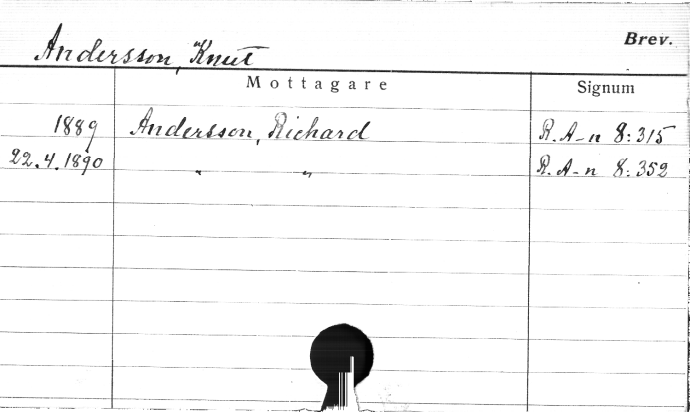 Andersson, Knut
Brev.
Mottagare
Signum
1889 Andersson, Richard R. A-n 8:315
22.4.1890 " " R. A-n 8:352